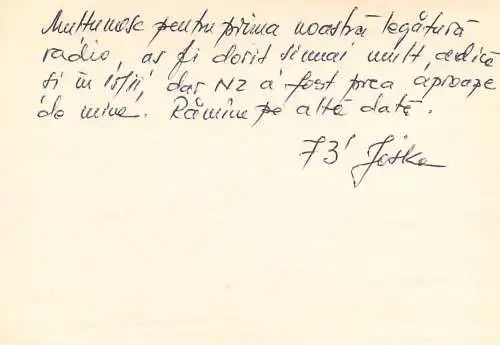 Multumesc pentru prima noastră legătură
radio, as fi dorit si mai mult, adică
si în 15/II, dar NZ a fost prea aproape
de mine. Rămîne pe altă dată.
73' Joska